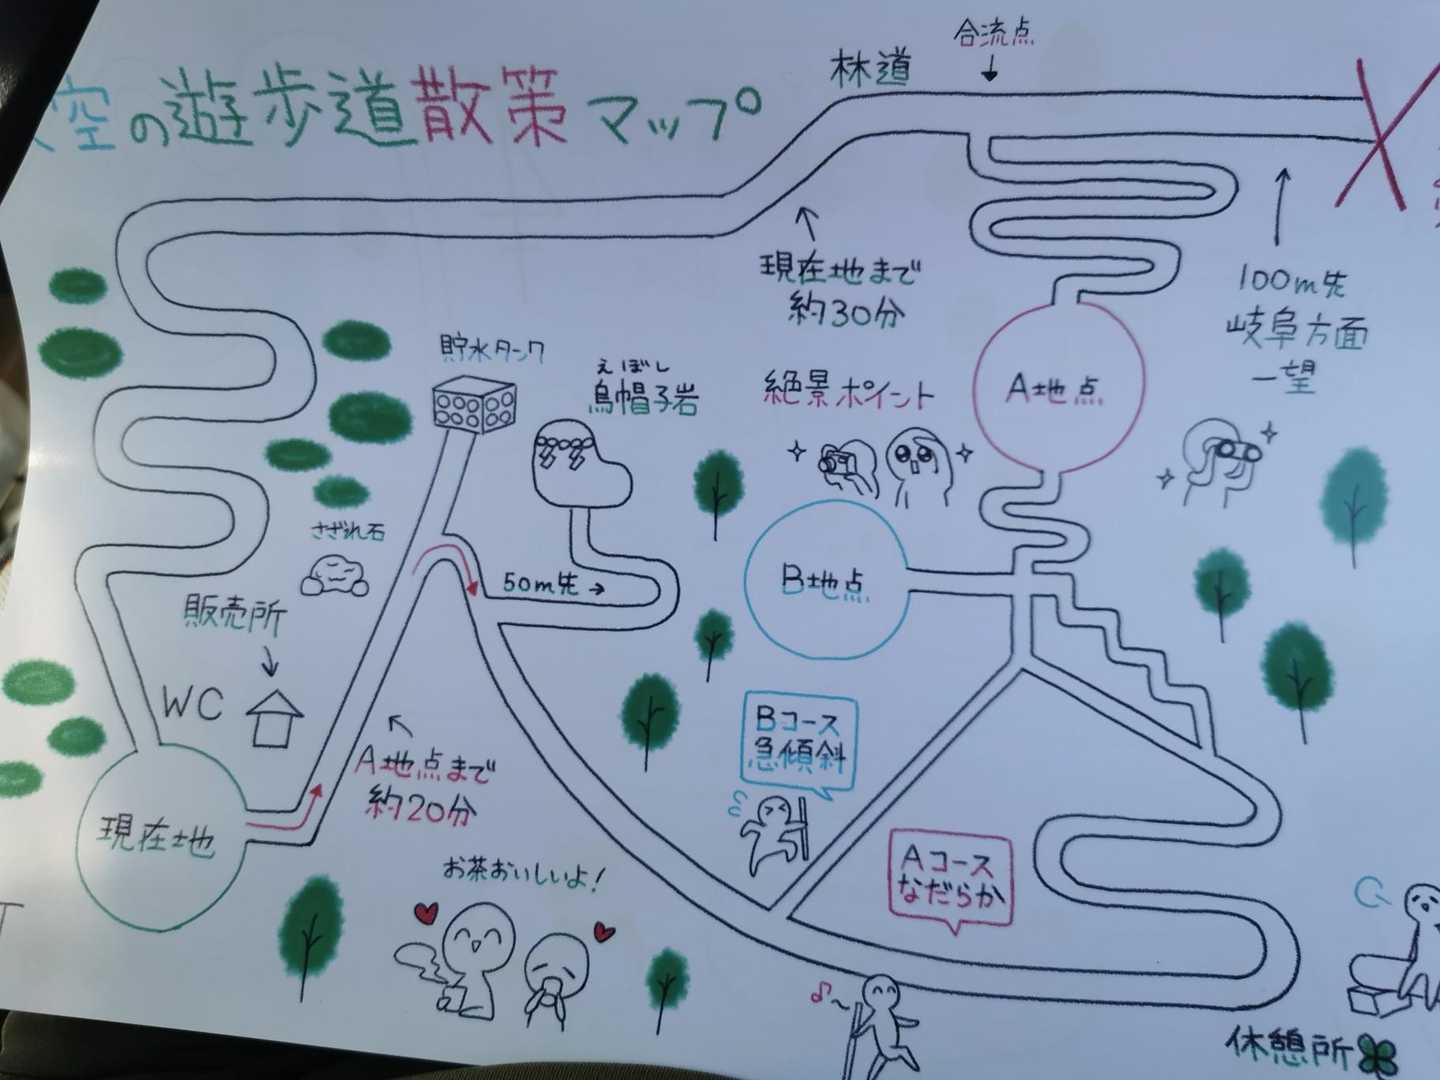 空の遊歩道散策マップ
林道
合流点
現在地まで
約30分
100m先
岐阜方面
一望
貯水タンク
えぼし
烏帽子岩
絶景ポイント
A地点
さざれ石
50m先→
B地点
販売所
WC
Bコース
急傾斜
A地点まで
約20分
現在地
Aコース
なだらか
お茶おいしいよ!
休憩所